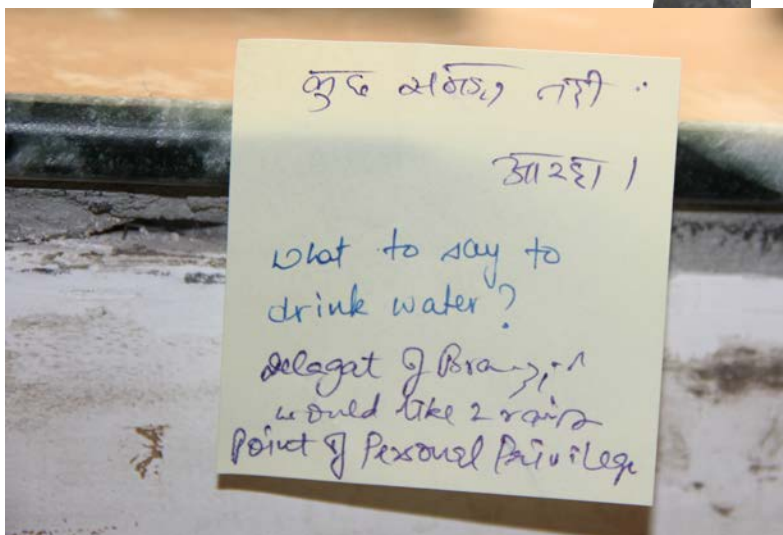 कुछ समझ नही
आ रहा ।
what to say to
drink water?
Delagat of Brazil
would like 2 raise
Point of Personal Privilege